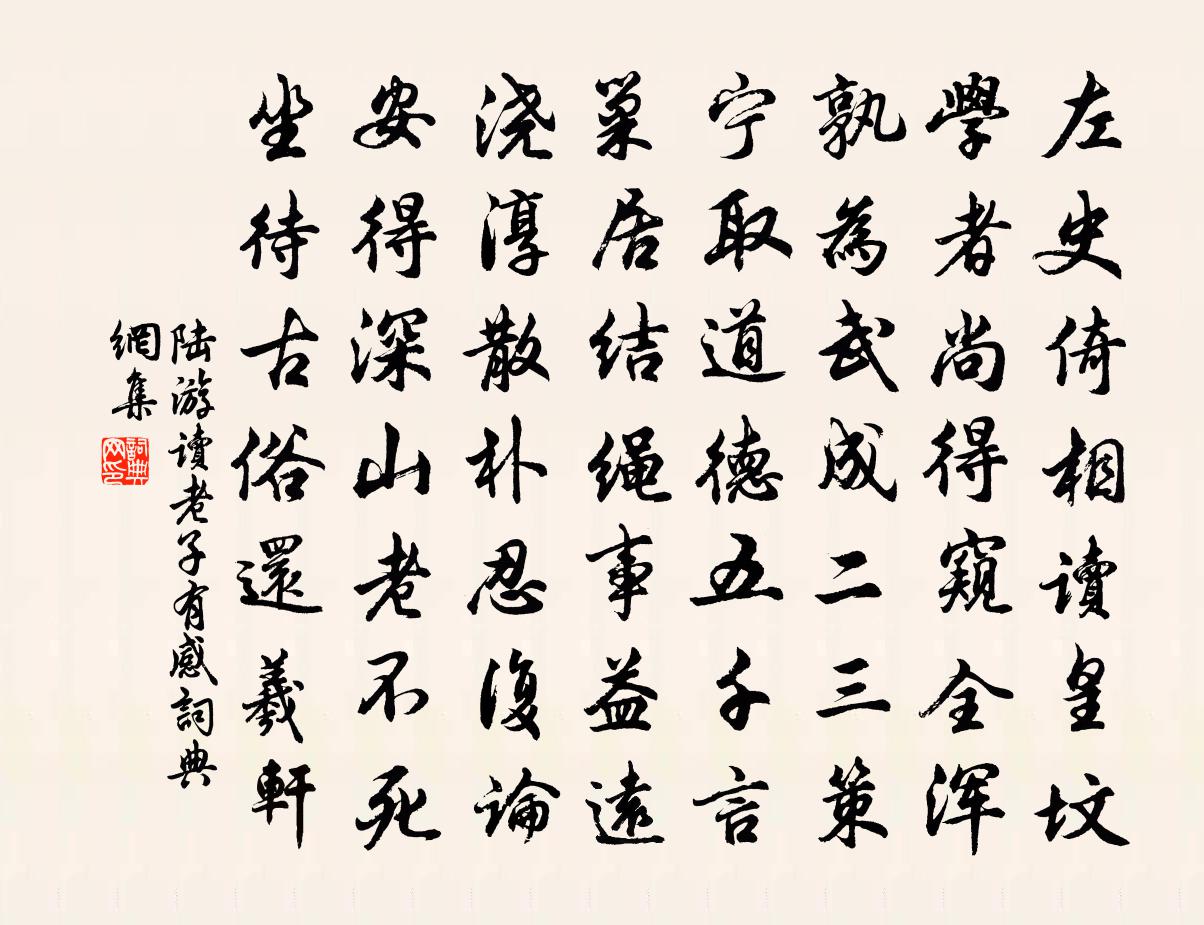 左史倚相讀皇坟
學者尚得窺全浑
孰為武成二三策
宁取道德五千言
巢居结绳事益遠
浇淳散朴忍復論
安得深山老不死
坐待古俗還羲軒
陆游讀老子有感詞典
網集
詞典
网印